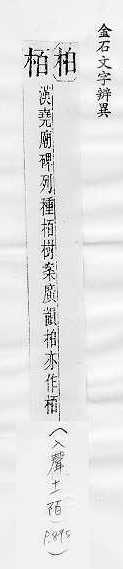 金石文字辨異
柏
栢
漢堯廟碑列種栢樹案廣韻柏亦作栢
(入聲十一陌)